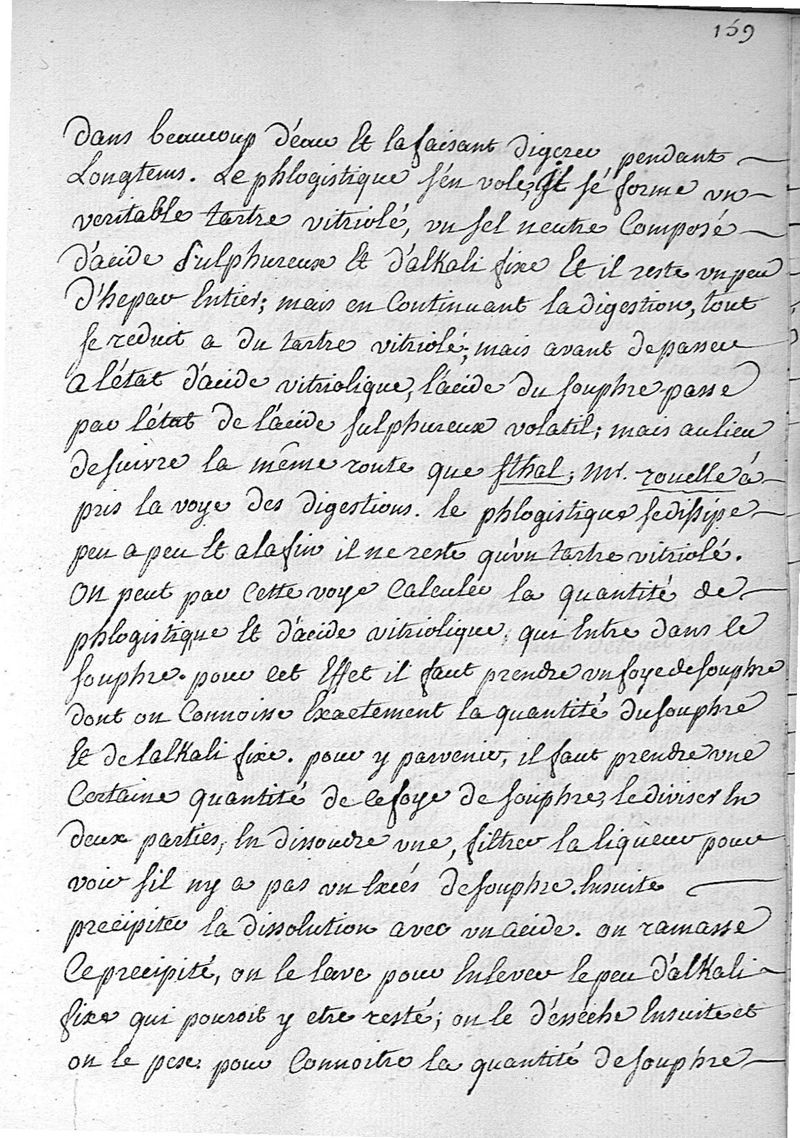 159
Dans beaucoup d'eau Et la faisant digerer pendant
Longtems. Le phlogistique s'en vole, Il sé forme un
veritable tartre vitriolé, un sel neutre Composé
d'acide Sulphureux Et d'alkali fixe Et il reste un peu
D'hepar Entier; mais en Continuant la digestion, tout
se reduit a du tartre vitriolé; mais avant de passer
a l'état d'acide vitriolique, l'acide du souphre passe
par l'état de l'acide sulphureux volatil; mais au lieu
de suivre la même route que sthal; Mr. rouelle à
pris la voye des digestions. le phlogistique se dissipe
peu a peu Et a la fin il ne reste qu'un tartre vitriolé.
On peut par Cette voye Calculer la quantité de
phlogistique Et d'acide vitriolique, qui Entre dans le
souphre. pour cet Effet il faut prendre un foye de souphre
dont on Connoisse Exactement la quantité du souphre
Et de l'alkali fixe. pour y parvenir, il faut prendre une
Certaine quantité de ce foye de souphre, le diviser En
deux parties, En dissoudre une, filtrer la liqueur pour
voir s'il n'y a pas un Excés de souphre. Ensuite
precipiter la dissolution avec un acide. on ramasse
Ce precipité, on le lave pour Enlever le peu d'alkali
fixe qui pouroit y etre resté; on le désséche Ensuite et
on le pese pour Connoitre la quantité de souphre